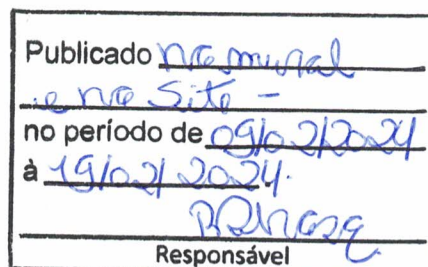 Publicado no mural
e no site -
no período de 09/02/2024
à 19/02/2024.
Responsável